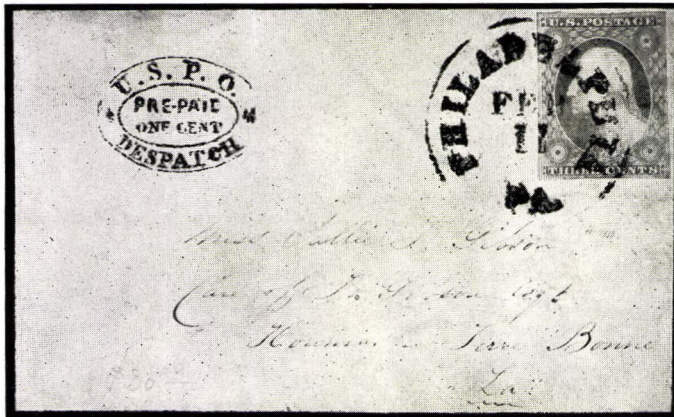 U.S.P.O.
PRE-PAID
ONE CENT
DESPATCH
PHILADELPHIA
FEB
11
Pa
U.S. POSTAGE
THREE CENTS
Miss Sallie
Care of
Terre Bonne
La